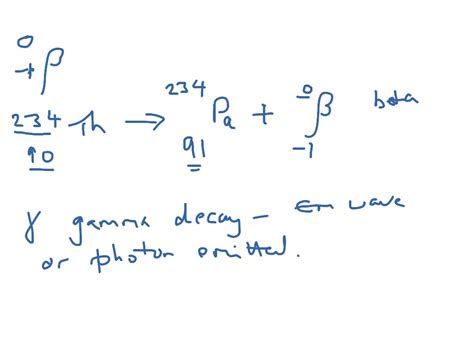 0
-1 β
234 Th → 234 Pa + 0 β beta
90 91 -1
γ gamma decay - em wave
or photon emitted.